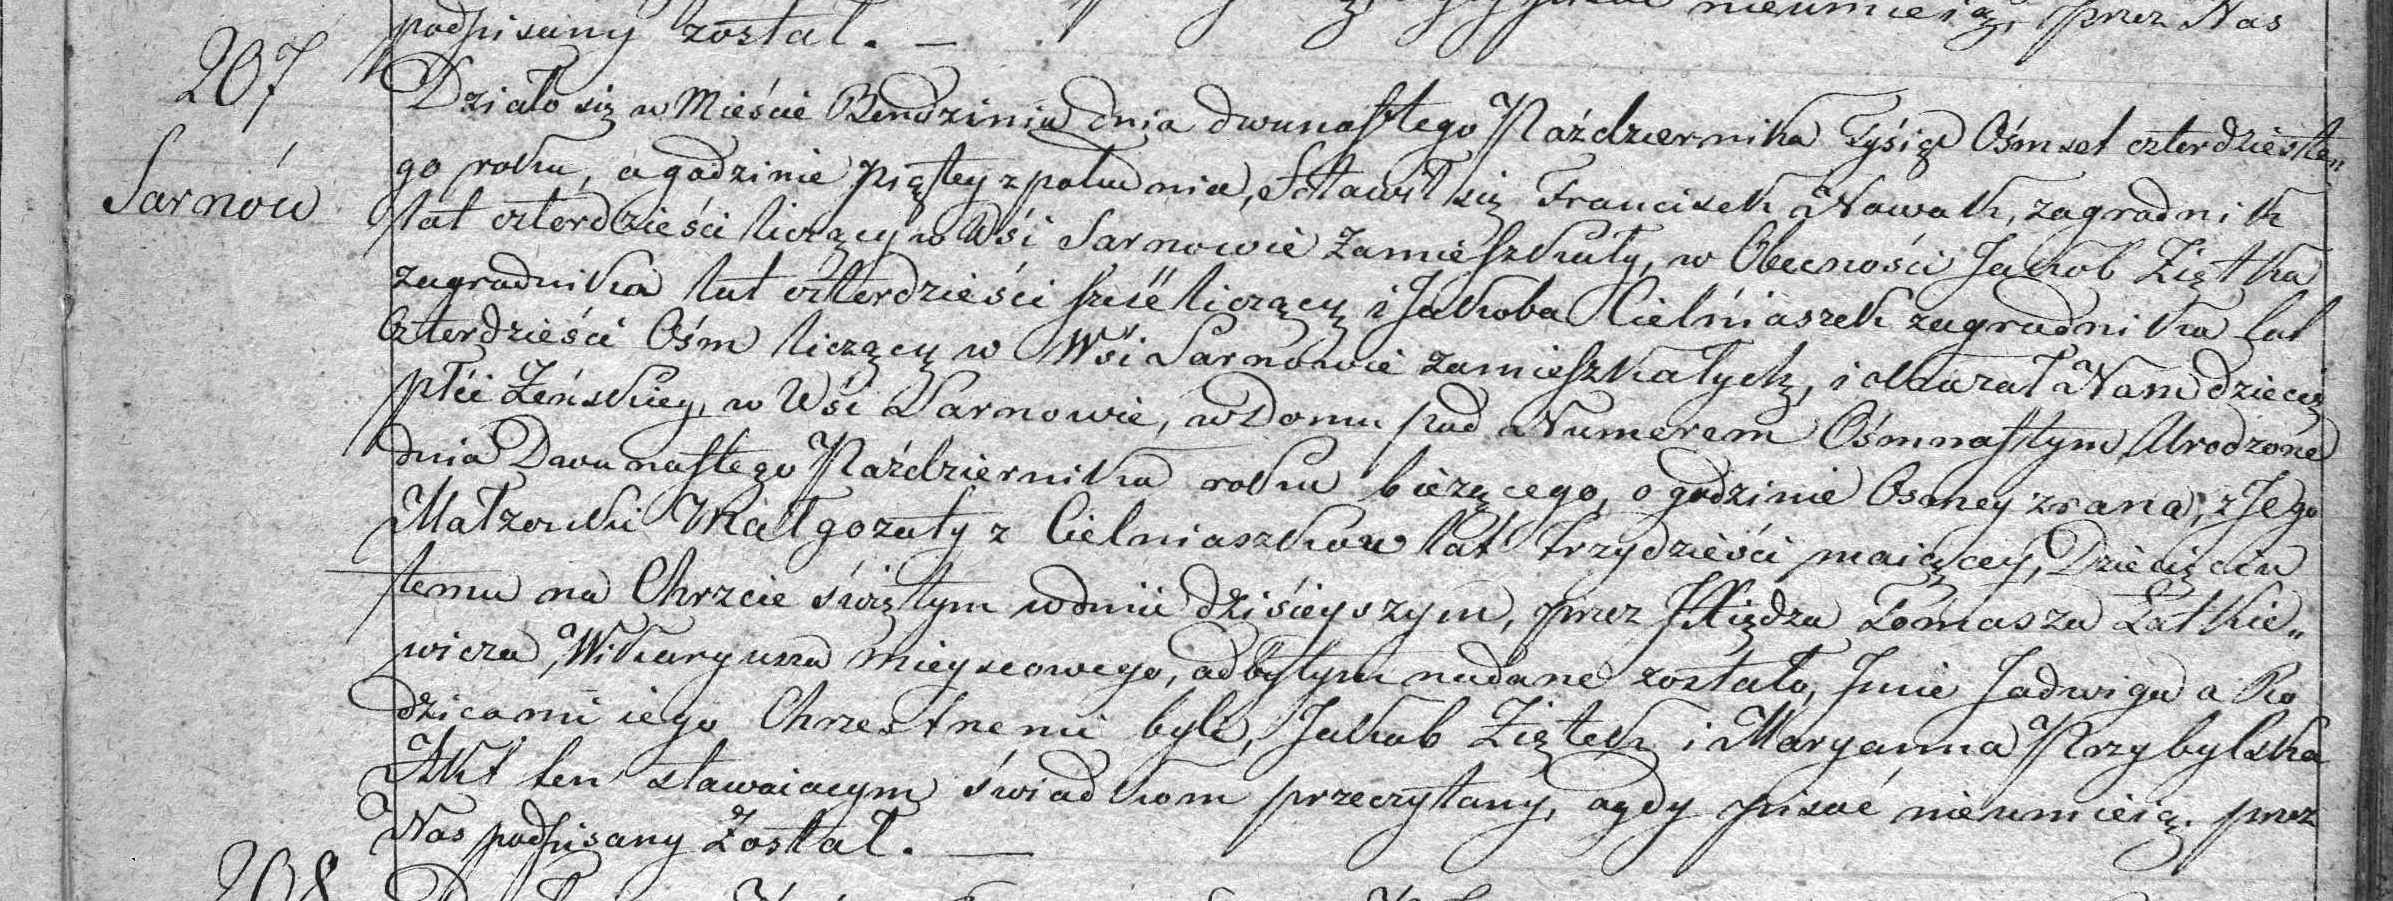 podpisany został. — nieumieią, przez Nas
207
Działo się w Mieście Bendzinie dnia dwunastego Października Tysiąc Ośmset czterdzieste
go roku, o godzinie piątey z południa, Stawił się Franciszek Nowak, zagrodnik
Sarnów
lat czterdzieści liczący w Wśi Sarnowie zamieszkały, w Obecności Jakob Ziętka
zagrodnika lat czterdzieści sześć liczący i Jakoba Cielniaszek zagrodnika lat
Czterdzieści Ośm liczący w Wśi Sarnowie zamieszkałych, i okazał Nam dziecię
płći Żeńskiey, w Wśi Sarnowie, w Domu pod Numerem Ośmnastym, Urodzone
dnia Dwunastego Października roku bieżącego, o godzinie Osmey zrana, z Jego
Małżonki Małgorzaty z Cielniaszkow lat trzydzieści maiącey, Dziecięciu
temu na Chrzcie świętym w dniu dzisieyszym, przez Xiędza Tomasza Łatkie„
wicza, Wikaryusza mieyscowego, odbytym nadane zostało, Imie Jadwiga a Ro
dzicami iego Chrzestnemi byli, Jakob Ziętek i Maryanna Przybylska
Akt ten stawaiacym świadkom przeczytany, agdy pisać nieumieią, przez
Nas podpisany Został. —
208